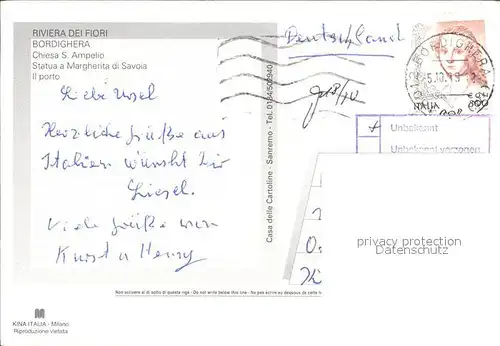 RIVIERA DEI FIORI
BORDIGHERA
Chiesa S. Ampelio
Statua a Margherita di Savoia
Il porto
Liebe Ursel
Herzliche Grüße aus
Italien wünscht Dir
Liesel.
Viele Grüße von
Kurt u Henny
KINA ITALIA - Milano
Riproduzione vietata
Casa delle Cartoline - Sanremo - Tel. 0184/502940
Non scrivere al di sotto di questa riga - Do not write below this one - Ne pas écrire au dessous de cette
Deutschland
BORDIGHERA
ITALIA
800
Unbekannt
Unbekannt verzogen
privacy protection
Datenschutz